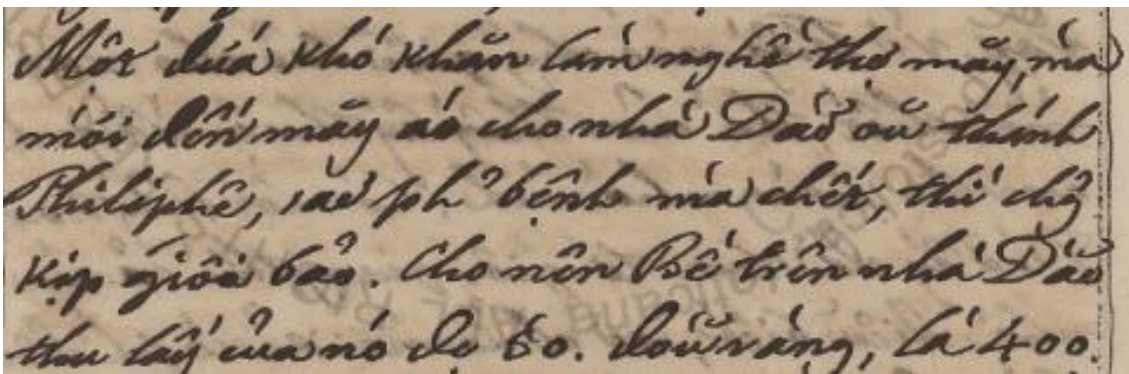 Một đứa khó khăn làm nghề thợ mãy, mà
mới đến mãy áo cho nhà Dào oũ thánh
Philiphê, sau ph᷃ bệnh mà chết, thì chg̉
kịp giối bảo. Cho nên Bề trên nhà Dào
thu lấy của nó đc 80. đoũ vàng, là 400.